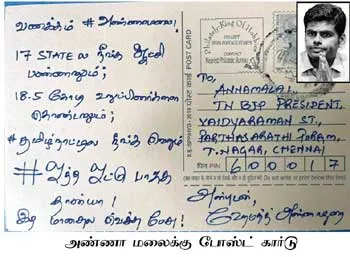 வணக்கம் #அண்ணாமலை!
17 STATE ல நீங்க ஆட்சி
பண்ணாலும்;
18.5 கோடி உறுப்பினர்களை
கொண்டாலும்;
#தமிழ்நாட்டில நீங்க வெறும்
#ஜந்து
தான்யா!
இத மனசுல வெச்சுக்க பேசு!
POST CARD
Philately-King Of Hobbies
TO,
ANNAMALAI,
TN BJP PRESIDENT,
VAIDYARAMAN ST,
PARTHASARATHI PURAM,
T.NAGAR, CHENNAI
पिन PIN 600017
அன்புடன்,
அண்ணா மலைக்கு போஸ்ட் கார்டு